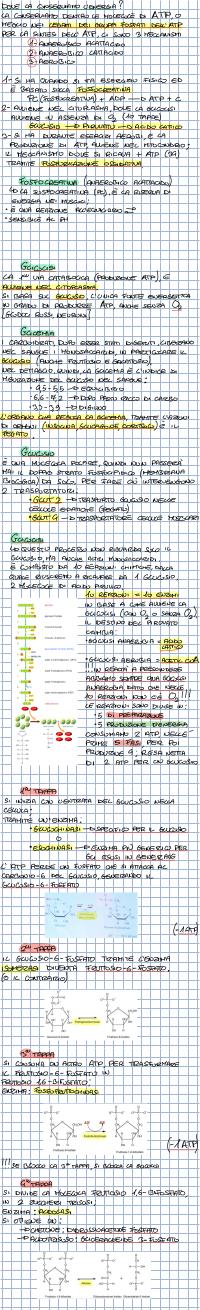 DOVE LA CONSERVIAMO L'ENERGIA?
LA CONSERVIAMO DENTRO LE MOLECOLE DI ATP, O
MEGLIO NEI LEGAMI DEI GRUPPI FOSFATI DELL'ATP
PER LA SINTESI DELL'ATP, CI SONO 3 MECCANISMI
1- ANAEROBICO ALATTACIDO
2- ANAEROBICO LATTACIDO
3- AEROBICO
1- SI HA QUANDO SI STA ESERCIZIO FISICO ED
È BASATO SULLA FOSFOCREATINA
PC (FOSFOCREATINA) + ADP → ATP + C
2- AVVIENE NEL CITOPLASMA, DOVE LA GLICOLISI
AVVIENE IN ASSENZA DI O2 (10 TAPPE)
GLUCOSIO → PIRUVATO → ACIDO LATTICO
3- SI HA DURANTE ESERCIZI AEROBI, E LA
PRODUZIONE DI ATP, AVVIENE NEL MITOCONDRIO;
IL MECCANISMO DOVE SI RICAVA + ATP
TRAMITE FOSFORILAZIONE OSSIDATIVA
FOSFOCREATINA (ANAEROBICO ALATTACIDO)
LA FOSFOCREATINA (PC), È LA RISERVA DI
ENERGIA NEI MUSCOLI;
• È UNA REAZIONE
• SENSIBILE AL PH
GLICOLISI
LA 1ª VIA CATABOLICA (PRODUZIONE ATP), E
AVVIENE NEL CITOPLASMA.
SI BASA SUL GLUCOSIO, L'UNICA FONTE ENERGETICA
IN GRADO DI PRODURRE ATP, ANCHE SENZA O2
[GLOBULI ROSSI, NEURONI]
GLICEMIA
I CARBOIDRATI, DOPO ESSER STATI DIGERITI, CIRCOLANO
NEL SANGUE I MONOSACCARIDI, IN PARTICOLARE IL
GLUCOSIO (ANCHE FRUTTOSIO E GALATTOSIO)
NEL DETTAGLIO, QUINDI, LA GLICEMIA È L'INDICE DI
MISURAZIONE DEL GLUCOSIO NEL SANGUE;
→ EQUILIBRIO
→ DOPO PASTO RICCO DI CARBO
→ DIGIUNO
L'ORGANO CHE REGOLA LA GLICEMIA, TRAMITE L'AZIONE
DI ORMONI (INSULINA, GLUCAGONE, CORTISOLO) È IL
FEGATO.
GLUCOSIO
È UNA MOLECOLA POLARE, QUINDI NON PASSERÀ
MAI IL DOPPIO STRATO FOSFOLIPIDICO (MEMBRANA
BIOLOGICA) DA SOLO, PER FARE CIÒ INTERVENGONO
2 TRASPORTATORI:
• GLUT 2 → TRASPORTO GLUCOSIO NELLE
CELLULE EPATICHE (FEGATO)
• GLUT 4 → TRASPORTATORE CELLULE MUSCOLARI
GLICOLISI
QUESTO PROCESSO NON RIGUARDA SOLO IL
GLUCOSIO, MA ANCHE ALTRI MONOSACCARIDI,
È COMPOSTO DA 10 REAZIONI CHIMICHE, DALLA
QUALE RIUSCIRETE A RICAVARE DA 1 GLUCOSIO,
2 MOLECOLE DI ACIDO PIRUVICO;
10 REAZIONI = 10 ENZIMI
IN BASE A COME AVVIENE LA
GLICOLISI (CON O2 O SENZA O2)
IL DESTINO DEL PIRUVATO
CAMBIA:
• GLICOLISI ANAEROBICA = ACIDO
LATTICO
• GLICOLISI AEROBICA = ACETIL COA
LE REAZIONI SONO DIVISE IN:
• 5 DI PREPARAZIONE
• 5 PRODUZIONE D'ENERGIA
CONSUMIAMO 2 ATP NELLE
PRIME 5 FASI, PER POI
DI 2 ATP PER UN GLUCOSIO
1ª TAPPA
SI INIZIA CON L'ENTRATA DEL GLUCOSIO NELLA
CELLULA;
TRAMITE UN ENZIMA:
• GLUCOCHINASI → SPECIFICO PER IL GLUCOSIO
O
• ESOCHINASI → ENZIMA PIÙ GENERICO PER
GLI ESOSI IN GENERALE
L'ATP PERDE UN FOSFATO CHE SI ATTACCA AL
CARBONIO-6 DEL GLUCOSIO, GENERANDO IL
GLUCOSIO-6-FOSFATO
(-1 ATP)
2ª TAPPA
IL GLUCOSIO-6-FOSFATO TRAMITE L'ENZIMA
ISOMERASI DIVENTA FRUTTOSIO-6-FOSFATO,
(O IL CONTRARIO)
3ª TAPPA
SI CONSUMA UN ALTRO ATP, PER TRASFORMARE
IL FRUTTOSIO-6-FOSFATO IN
FRUTTOSIO 1,6-BIFOSFATO;
ENZIMA: FOSFOFRUTTOCHINASI
(-1 ATP)
!!! SE BLOCCO LA 3ª TAPPA, SI BLOCCA LA GLICOLISI
4ª TAPPA
SI DIVIDE LA MOLECOLA FRUTTOSIO 1,6-BIFOSFATO,
IN 2 ZUCCHERI TRIOSI;
ENZIMA: ALDOLASI
SI OTTIENE UN:
→ CHETONE: DIIDROSSIACETONE FOSFATO
→ ALDOTRIOSO: GLICERALDEIDE 3-FOSFATO